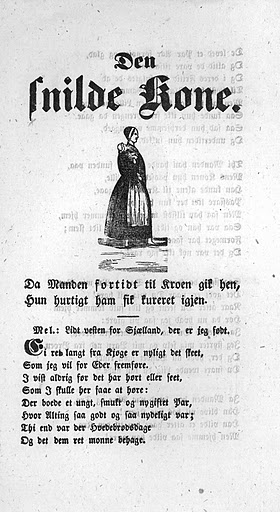 Den
snilde Kone.
Da Manden fortidt til Kroen gik hen,
Hun hurtigt ham fik kureret igjen.
Mel.: Lidt vesten for Sjælland, der er jeg født.
Ei ret langt fra Kjøge er nyligt det skeet,
Som jeg vil for Eder fremføre.
I vist aldrig før det har hørt eller seet,
Som I skulle her faae at høre:
Der boede et ungt, smukt og nygiftet Par,
Hvor Alting saa godt og saa nydeligt var;
Thi end var der Hvedebrødsdage
Og det dem ret monne behage.